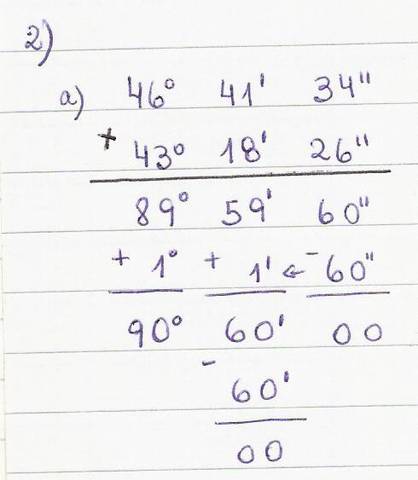 2)
a) 46° 41' 34"
+ 43° 18' 26"
89° 59' 60"
+ 1° + 1' ← - 60"
90° 60' 00
- 60'
00